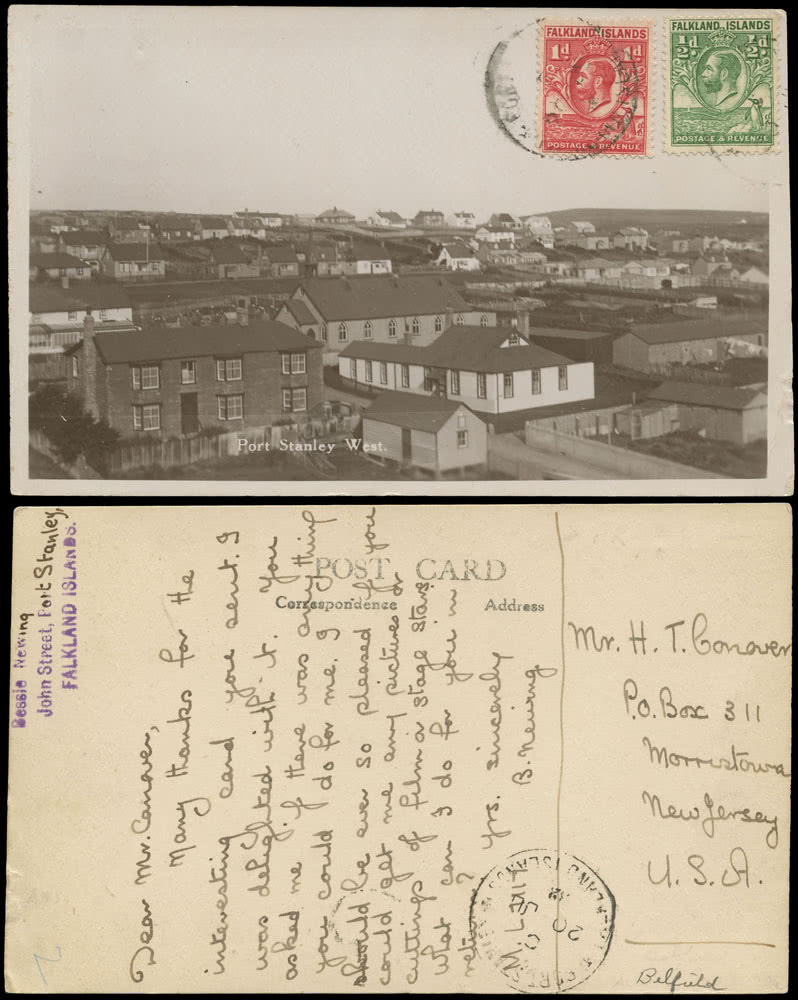 FALKLAND ISLANDS
1d 1d
POSTAGE & REVENUE
FALKLAND ISLANDS
½d ½d
POSTAGE & REVENUE
Port Stanley West.
Bessie Newing
John Street, Port Stanley,
FALKLAND ISLANDS.
POST CARD
Correspondence
Address
Dear Mr. Conover,
Many thanks for the
interesting card you sent. I
was delighted with it. You
asked me if there was anything
you could do for me. I
should be ever so pleased if you
could get me any pictures or
cuttings of film or stage stars.
What can I do for you in
return?
Yrs. sincerely
B. Newing
Mr. H. T. Conover
P.O. Box 311
Morristown
New Jersey
U.S.A.
Belfield